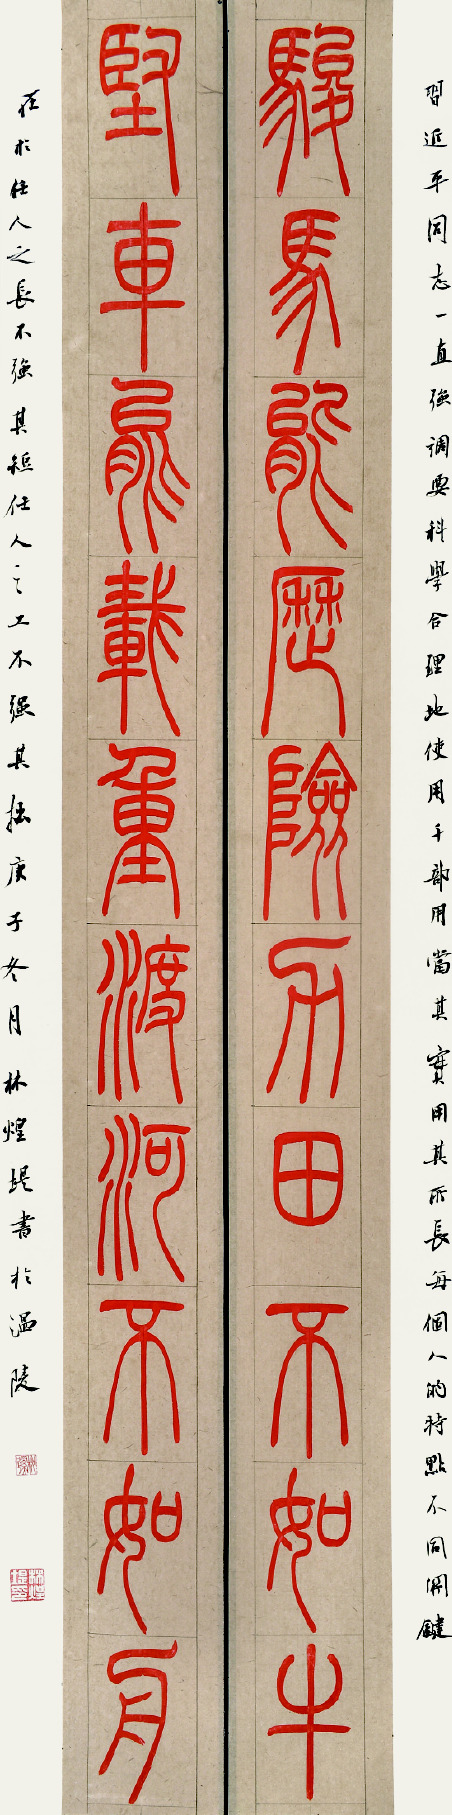 習近平同志一直強調要科學合理地使用干部用當其實用其所長每個人的特點不同關鍵
駿馬能歷險力田不如牛
堅車能載重渡河不如舟
在於任人之長不強其短任人之工不强其拙庚子冬月林煌堤書於溫陵